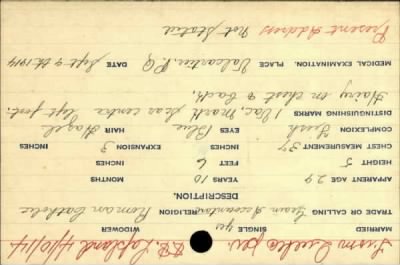 MARRIED SINGLE yes WIDOWER
TRADE OR CALLING Accountant RELIGION Roman Catholic
DESCRIPTION.
APPARENT AGE 29 YEARS 10 MONTHS
HEIGHT 5 FEET 6 INCHES
CHEST MEASUREMENT 37 INCHES EXPANSION 3 INCHES
COMPLEXION Fresh EYES Blue HAIR Hazel
DISTINGUISHING MARKS 1 Vac. mark Scar centre left foot.
Hairy on chest & back,
MEDICAL EXAMINATION. PLACE Valcartier, P.Q DATE Sept 9th 1914
Present Address Not Stated